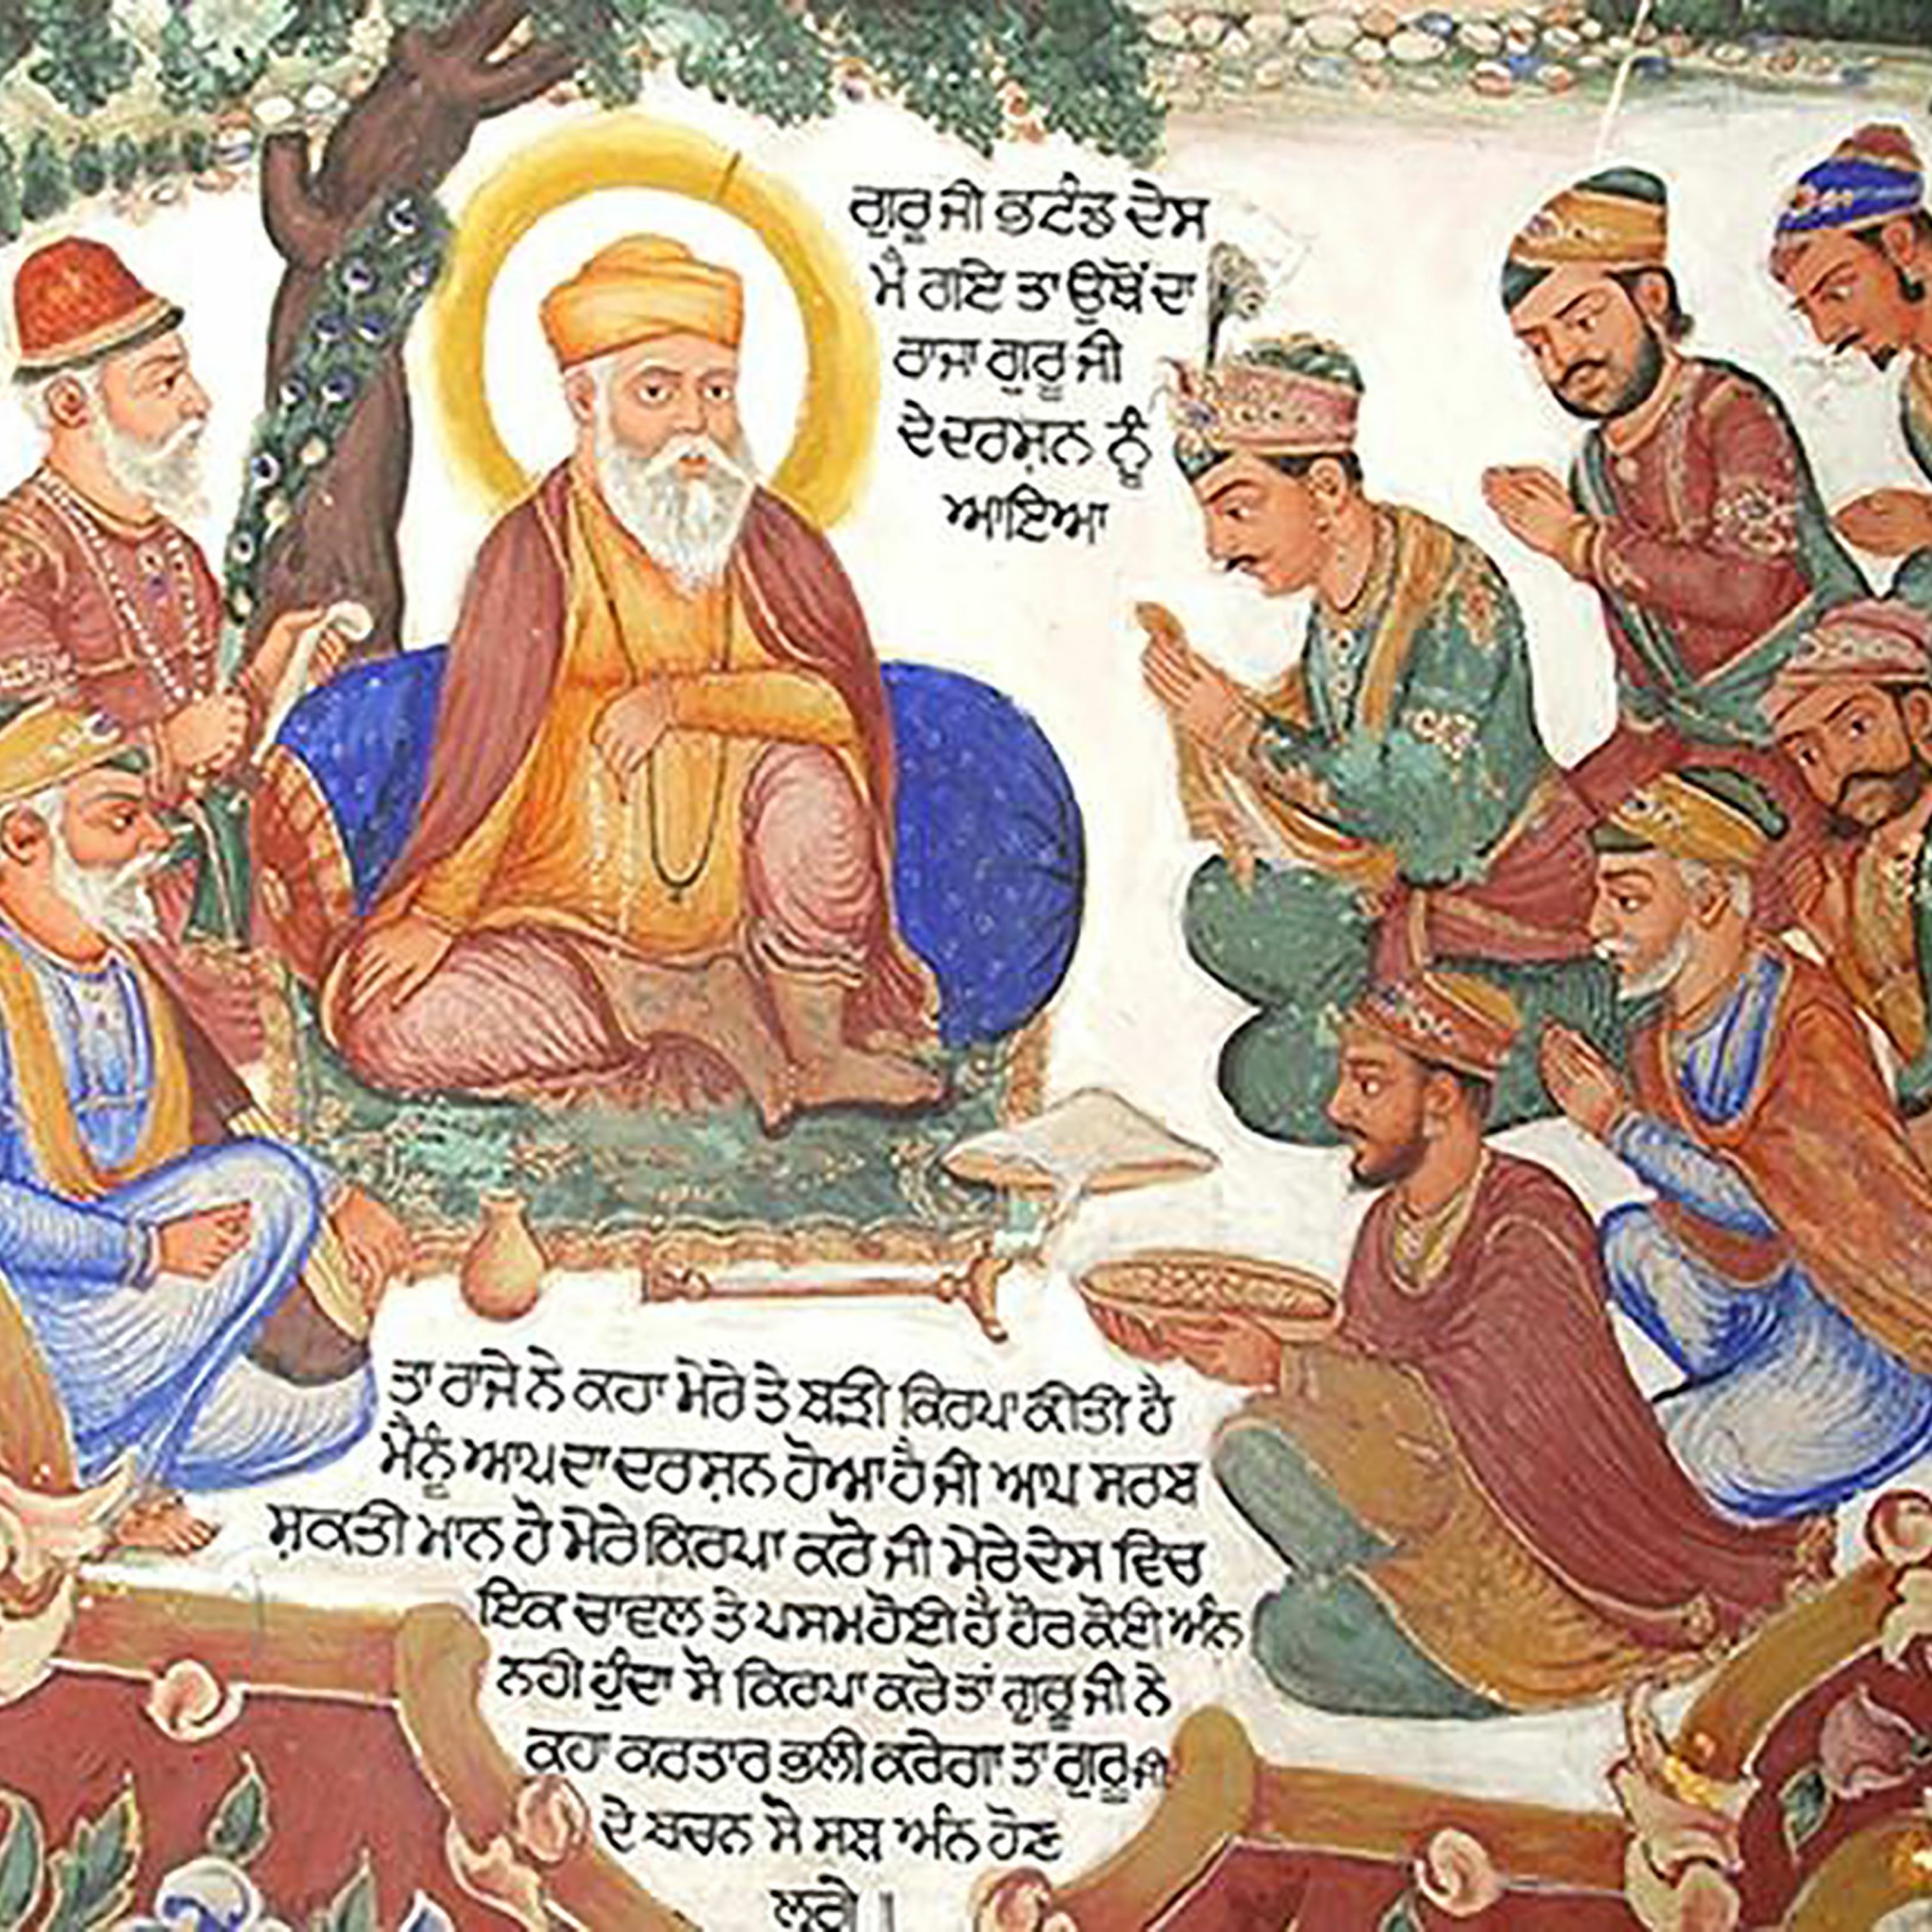 ਗੁਰੂ ਜੀ ਭਟੰਡ ਦੇਸ
ਮੈ ਗਏ ਤਾ ਉਥੋਂ ਦਾ
ਰਾਜਾ ਗੁਰੂ ਜੀ
ਦੇ ਦਰਸ਼ਨ ਨੂੰ
ਆਇਆ
ਤਾ ਰਾਜੇ ਨੇ ਕਹਾ ਮੇਰੇ ਤੇ ਬੜੀ ਕਿਰਪਾ ਕੀਤੀ ਹੈ
ਮੈਨੂੰ ਆਪ ਦਾ ਦਰਸ਼ਨ ਹੋਆ ਹੈ ਜੀ ਆਪ ਸਰਬ
ਸ਼ਕਤੀ ਮਾਨ ਹੋ ਮੇਰੇ ਕਿਰਪਾ ਕਰੋ ਜੀ ਮੇਰੇ ਦੇਸ ਵਿਚ
ਇਕ ਚਾਵਲ ਤੇ ਪਸਮ ਹੋਈ ਹੈ ਹੋਰ ਕੋਈ ਅੰਨ
ਨਹੀ ਹੁੰਦਾ ਸੋ ਕਿਰਪਾ ਕਰੋ ਤਾਂ ਗੁਰੂ ਜੀ ਨੇ
ਕਹਾ ਕਰਤਾਰ ਭਲੀ ਕਰੇਗਾ ਤਾ ਗੁਰੂ ਜੀ
ਦੇ ਬਚਨ ਸੋ ਸਬ ਅੰਨ ਹੋਣ
ਲਗੇ ॥